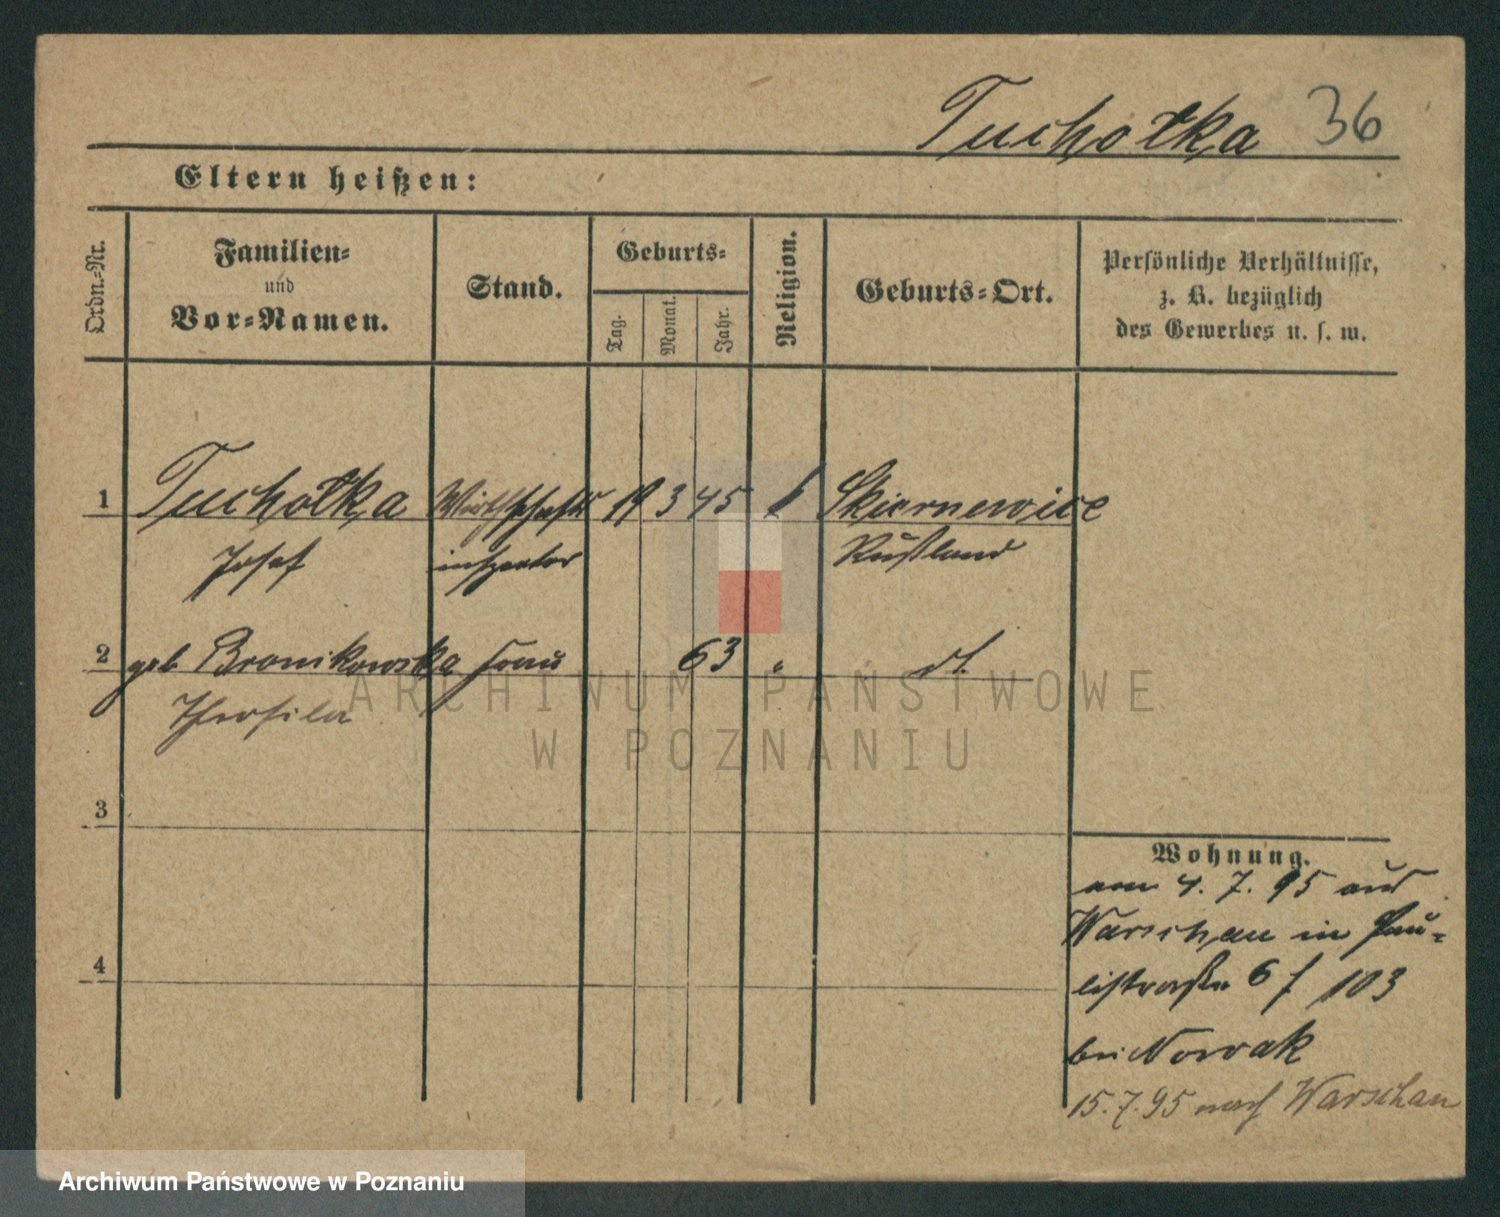 Tuchołka 36
Eltern heißen:
Ordn.-Nr.
Familien-
und
Vor-Namen.
Stand.
Geburts-
Tag.
Monat.
Jahr.
Religion.
Geburts-Ort.
Persönliche Verhältnisse,
z. B. bezüglich
des Gewerbes u. s. w.
1 Tuchołka Wirthschafts 19 3 45 k Skiernewice
Josef inspector Rußland
2 geb Bronikowska Frau 63 " dt.
Theofila
3
4
Wohnung.
am 4. 7. 95 aus
Warschau in Pau-
listraße 6 f 103
bei Nowak
15. 7. 95 nach Warschau
ARCHIWUM PAŃSTWOWE
W POZNANIU
Archiwum Państwowe w Poznaniu